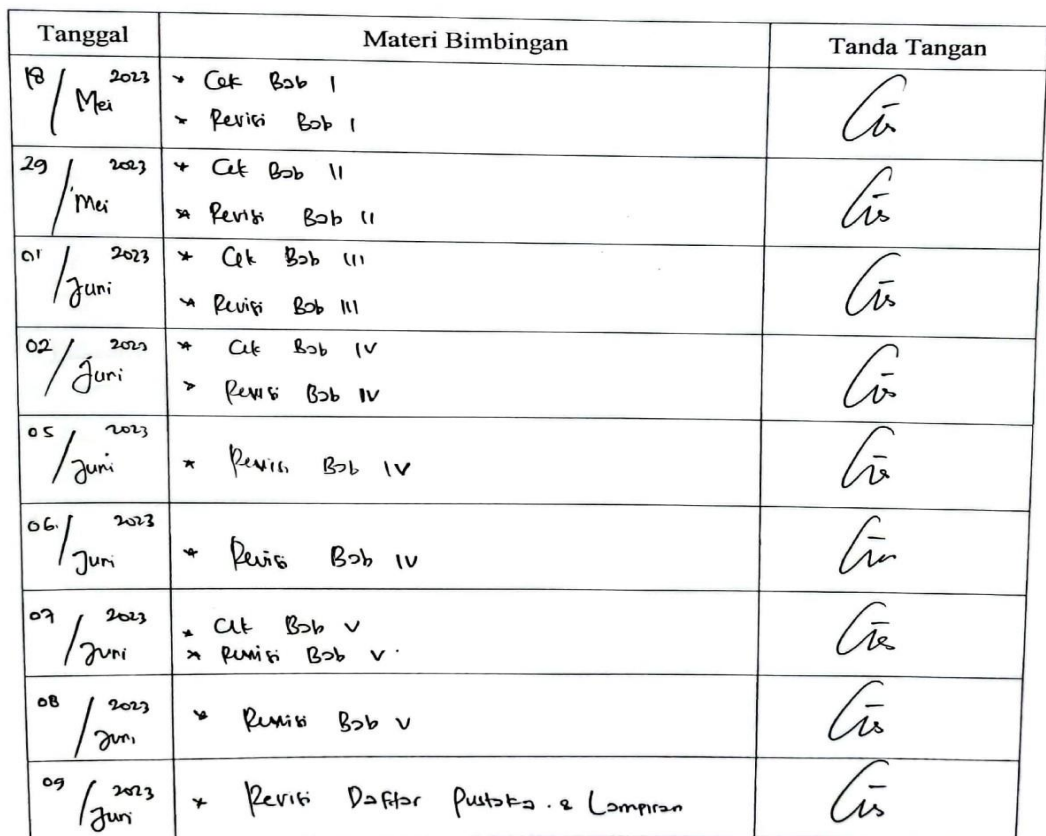 Tanggal Materi Bimbingan Tanda Tangan
18 / Mei 2023
* Cek Bab I
* Revisi Bab I
29 / Mei 2023
* Cek Bab II
* Revisi Bab II
01 / Juni 2023
* Cek Bab III
* Revisi Bab III
02 / Juni 2023
* Cek Bab IV
* Revisi Bab IV
05 / Juni 2023
* Revisi Bab IV
06 / Juni 2023
* Revisi Bab IV
07 / Juni 2023
* Cek Bab V
* Revisi Bab V
08 / Juni 2023
* Revisi Bab V
09 / Juni 2023
* Revisi Daftar Pustaka & Lampiran